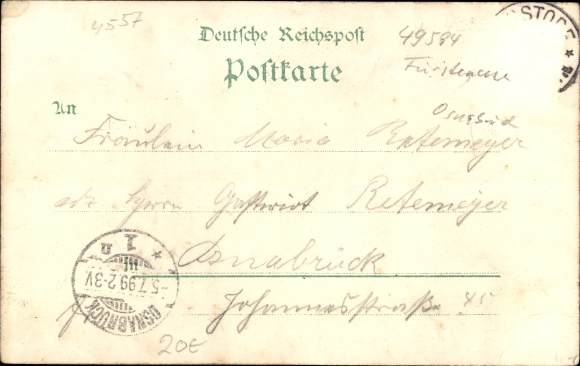 4557
Deutsche Reichspost
49584
Postkarte
Fürstenau
Osnabrück
An
Fräulein Maria Retemeyer
Herrn Gastwirt Retemeyer
Osnabrück
Johannesstraße 45
OSNABRÜCK
5.7.99.2-3V.
1
20€